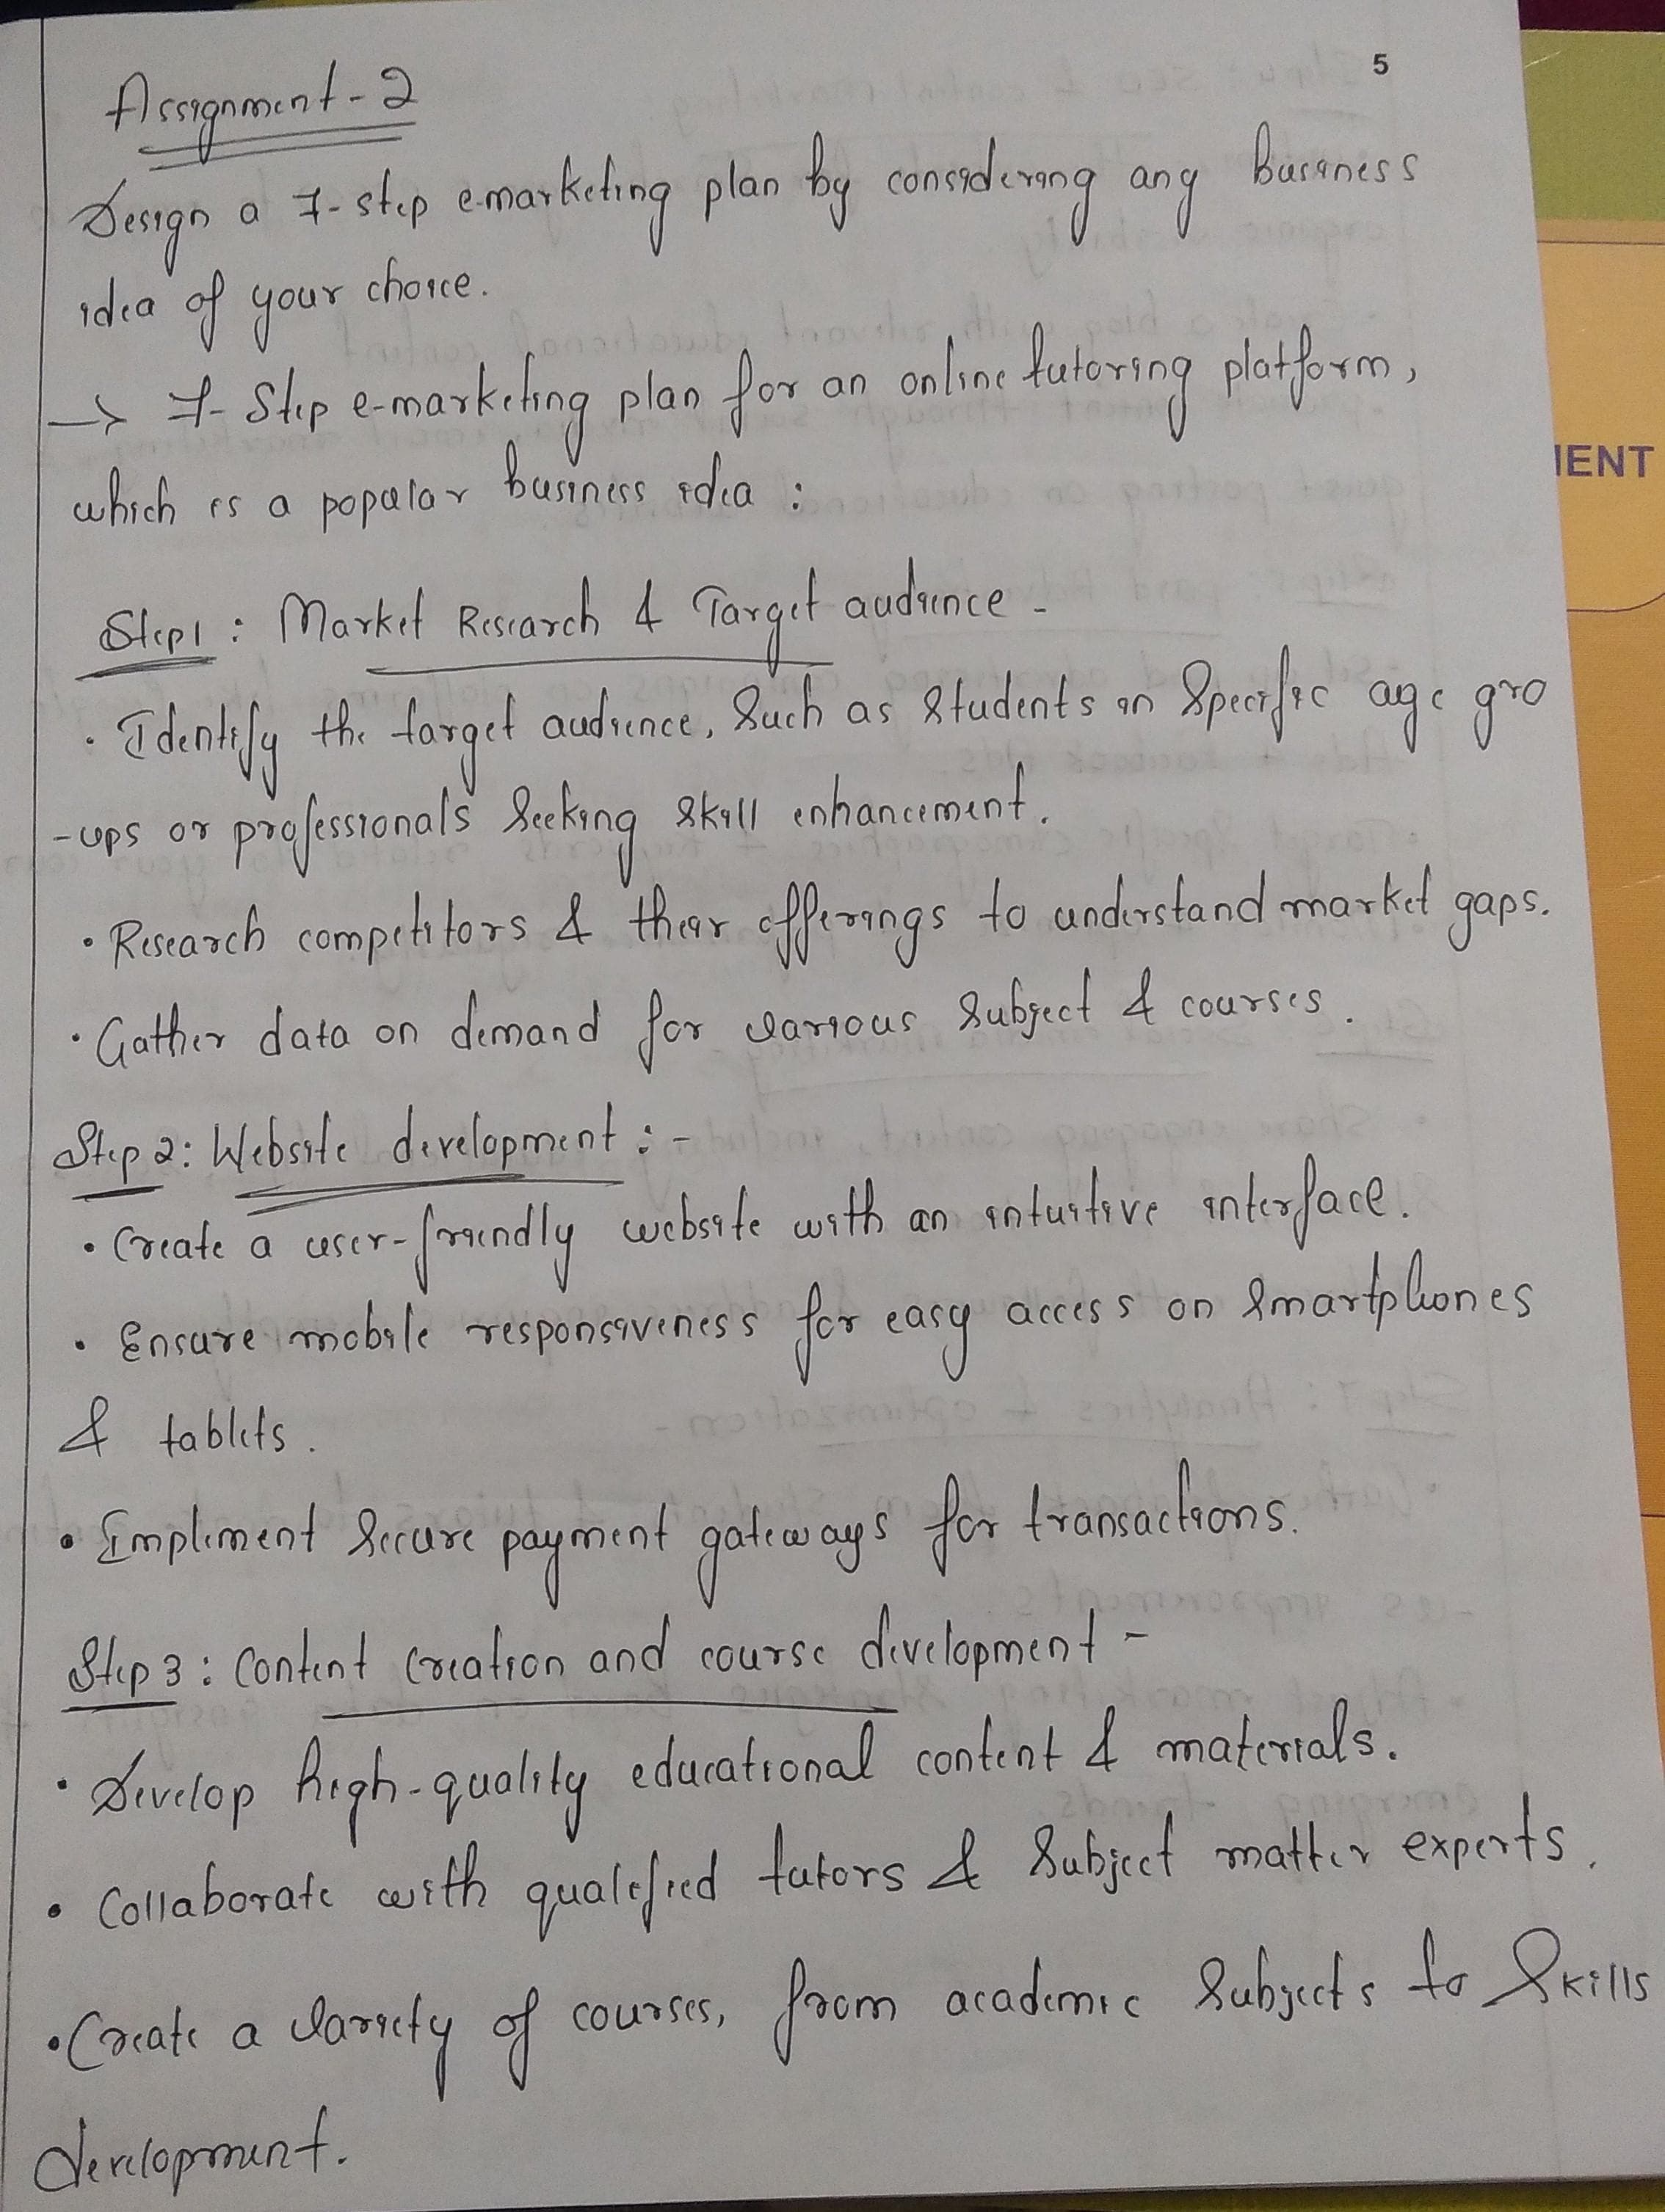 5
Assignment-2
Design a 7-step e-marketing plan by considering any business
idea of your choice.
→ 7-Step e-marketing plan for an online tutoring platform,
which is a popular business idea :
Step1 : Market Research & Target audience -
• Identify the target audience, Such as Students in Specific age gro
-ups or professionals Seeking Skill enhancement.
• Research competitors & their offerings to understand market gaps.
• Gather data on demand for various Subject & courses.
Step 2: Website development :-
• Create a user-friendly website with an intuitive interface.
• Ensure mobile responsiveness for easy access on Smartphones
& tablets.
• Impliment Secure payment gateways for transactions.
Step 3 : Content Creation and course development -
• Develop high-quality educational content & materials.
• Collaborate with qualified tutors & Subject matter experts.
• Create a variety of courses, from academic Subjects to Skills
development.
IENT